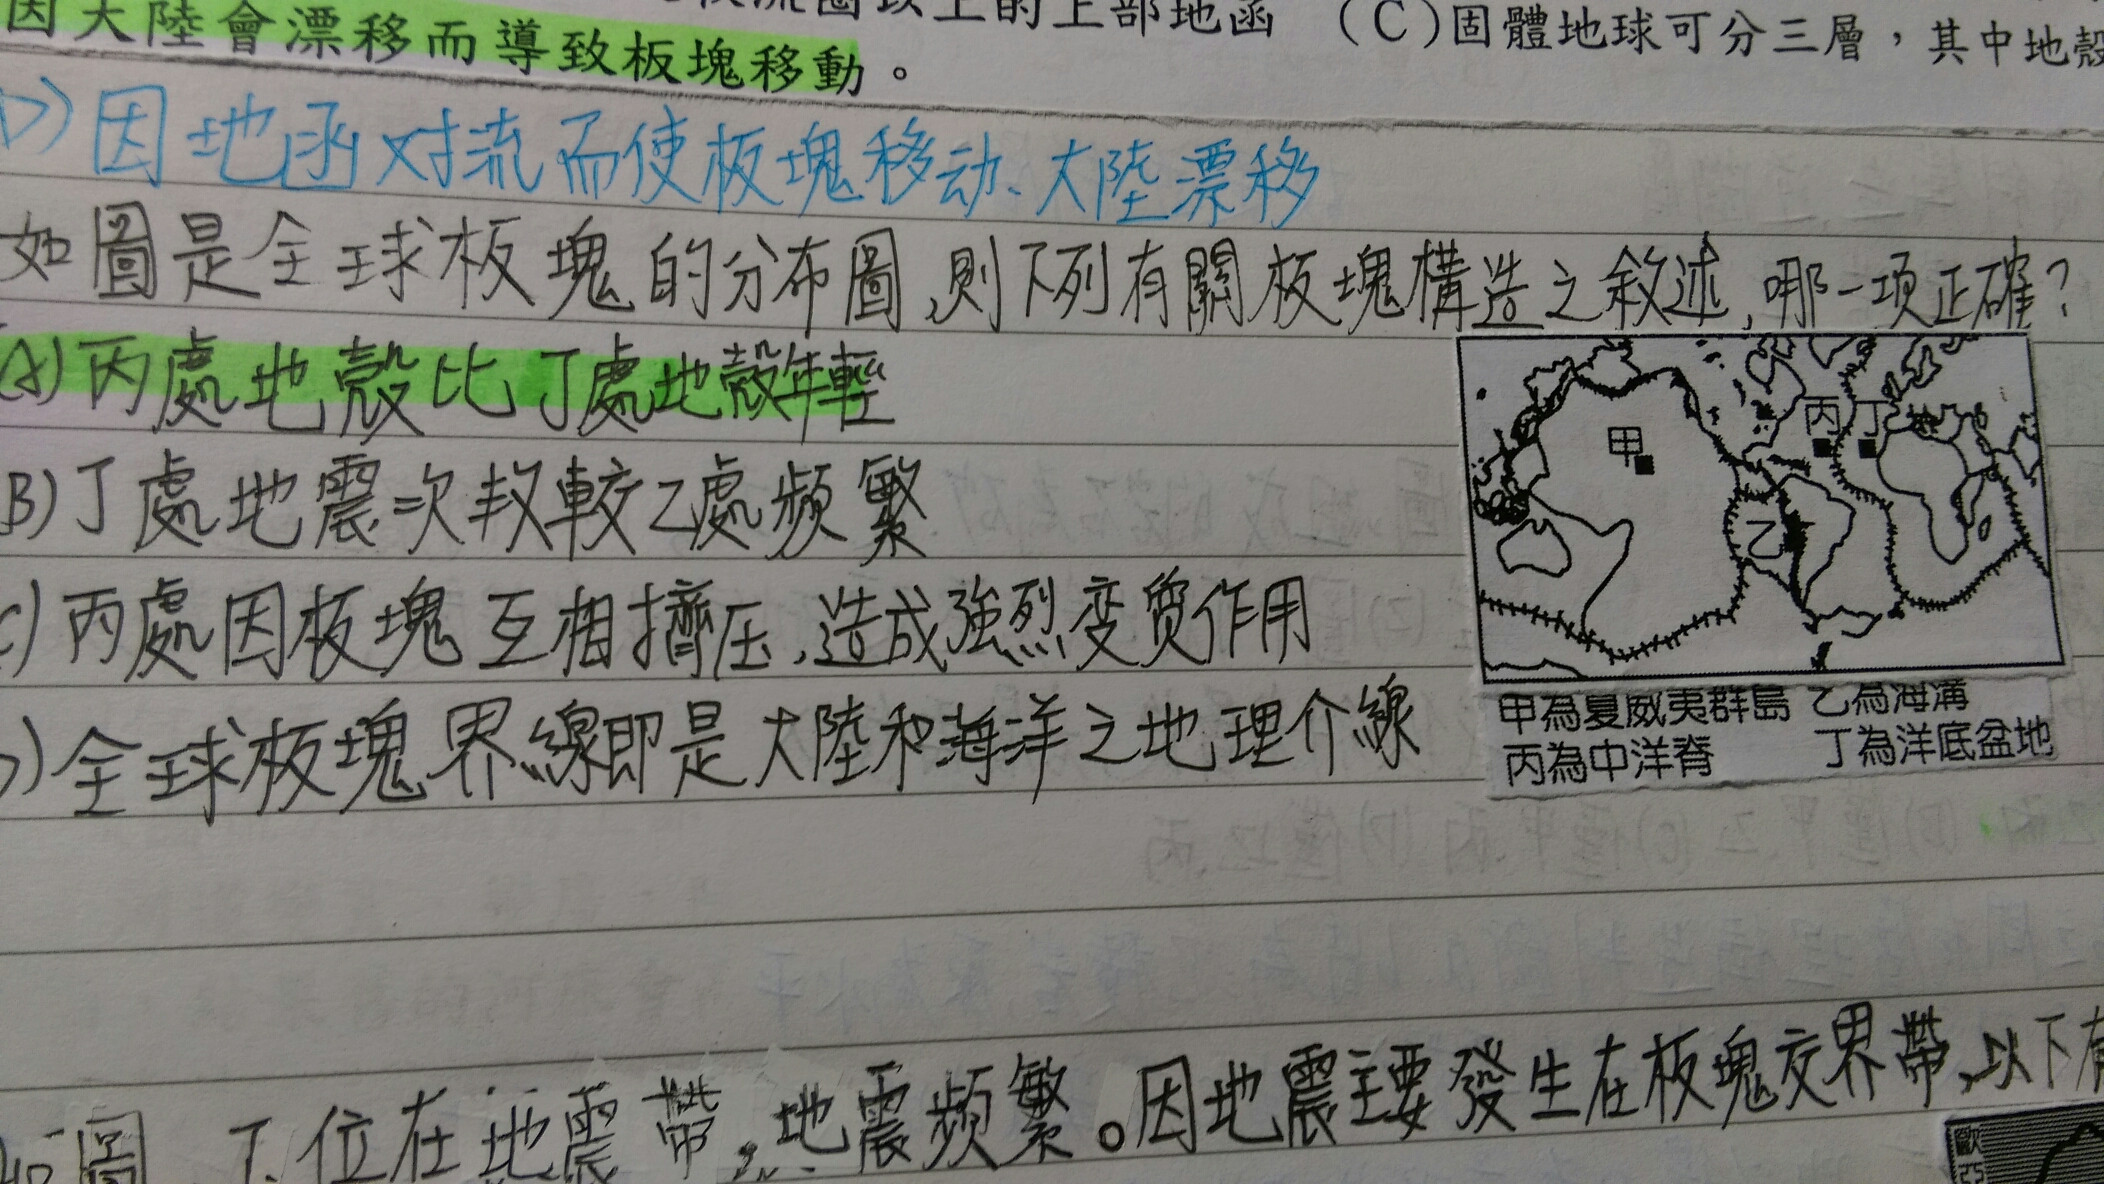 因大陸會漂移而導致板塊移動。
以上的上部地函 (C)固體地球可分三層，其中地殼
D)因地函对流而使板塊移动、大陸漂移
如圖是全球板塊的分布圖,則下列有關板塊構造之敘述,哪一項正確?
(A)丙處地殼比丁處地殼年輕
B)丁處地震次数較乙處頻繁
C)丙處因板塊互相擠压,造成強烈变質作用
D)全球板塊界線即是大陸和海洋之地理介線
甲
乙
丙
丁
甲為夏威夷群島 乙為海溝
丙為中洋脊 丁為洋底盆地
位在地震帶,地震頻繁。因地震主要發生在板塊交界帶,以下有
歐亞